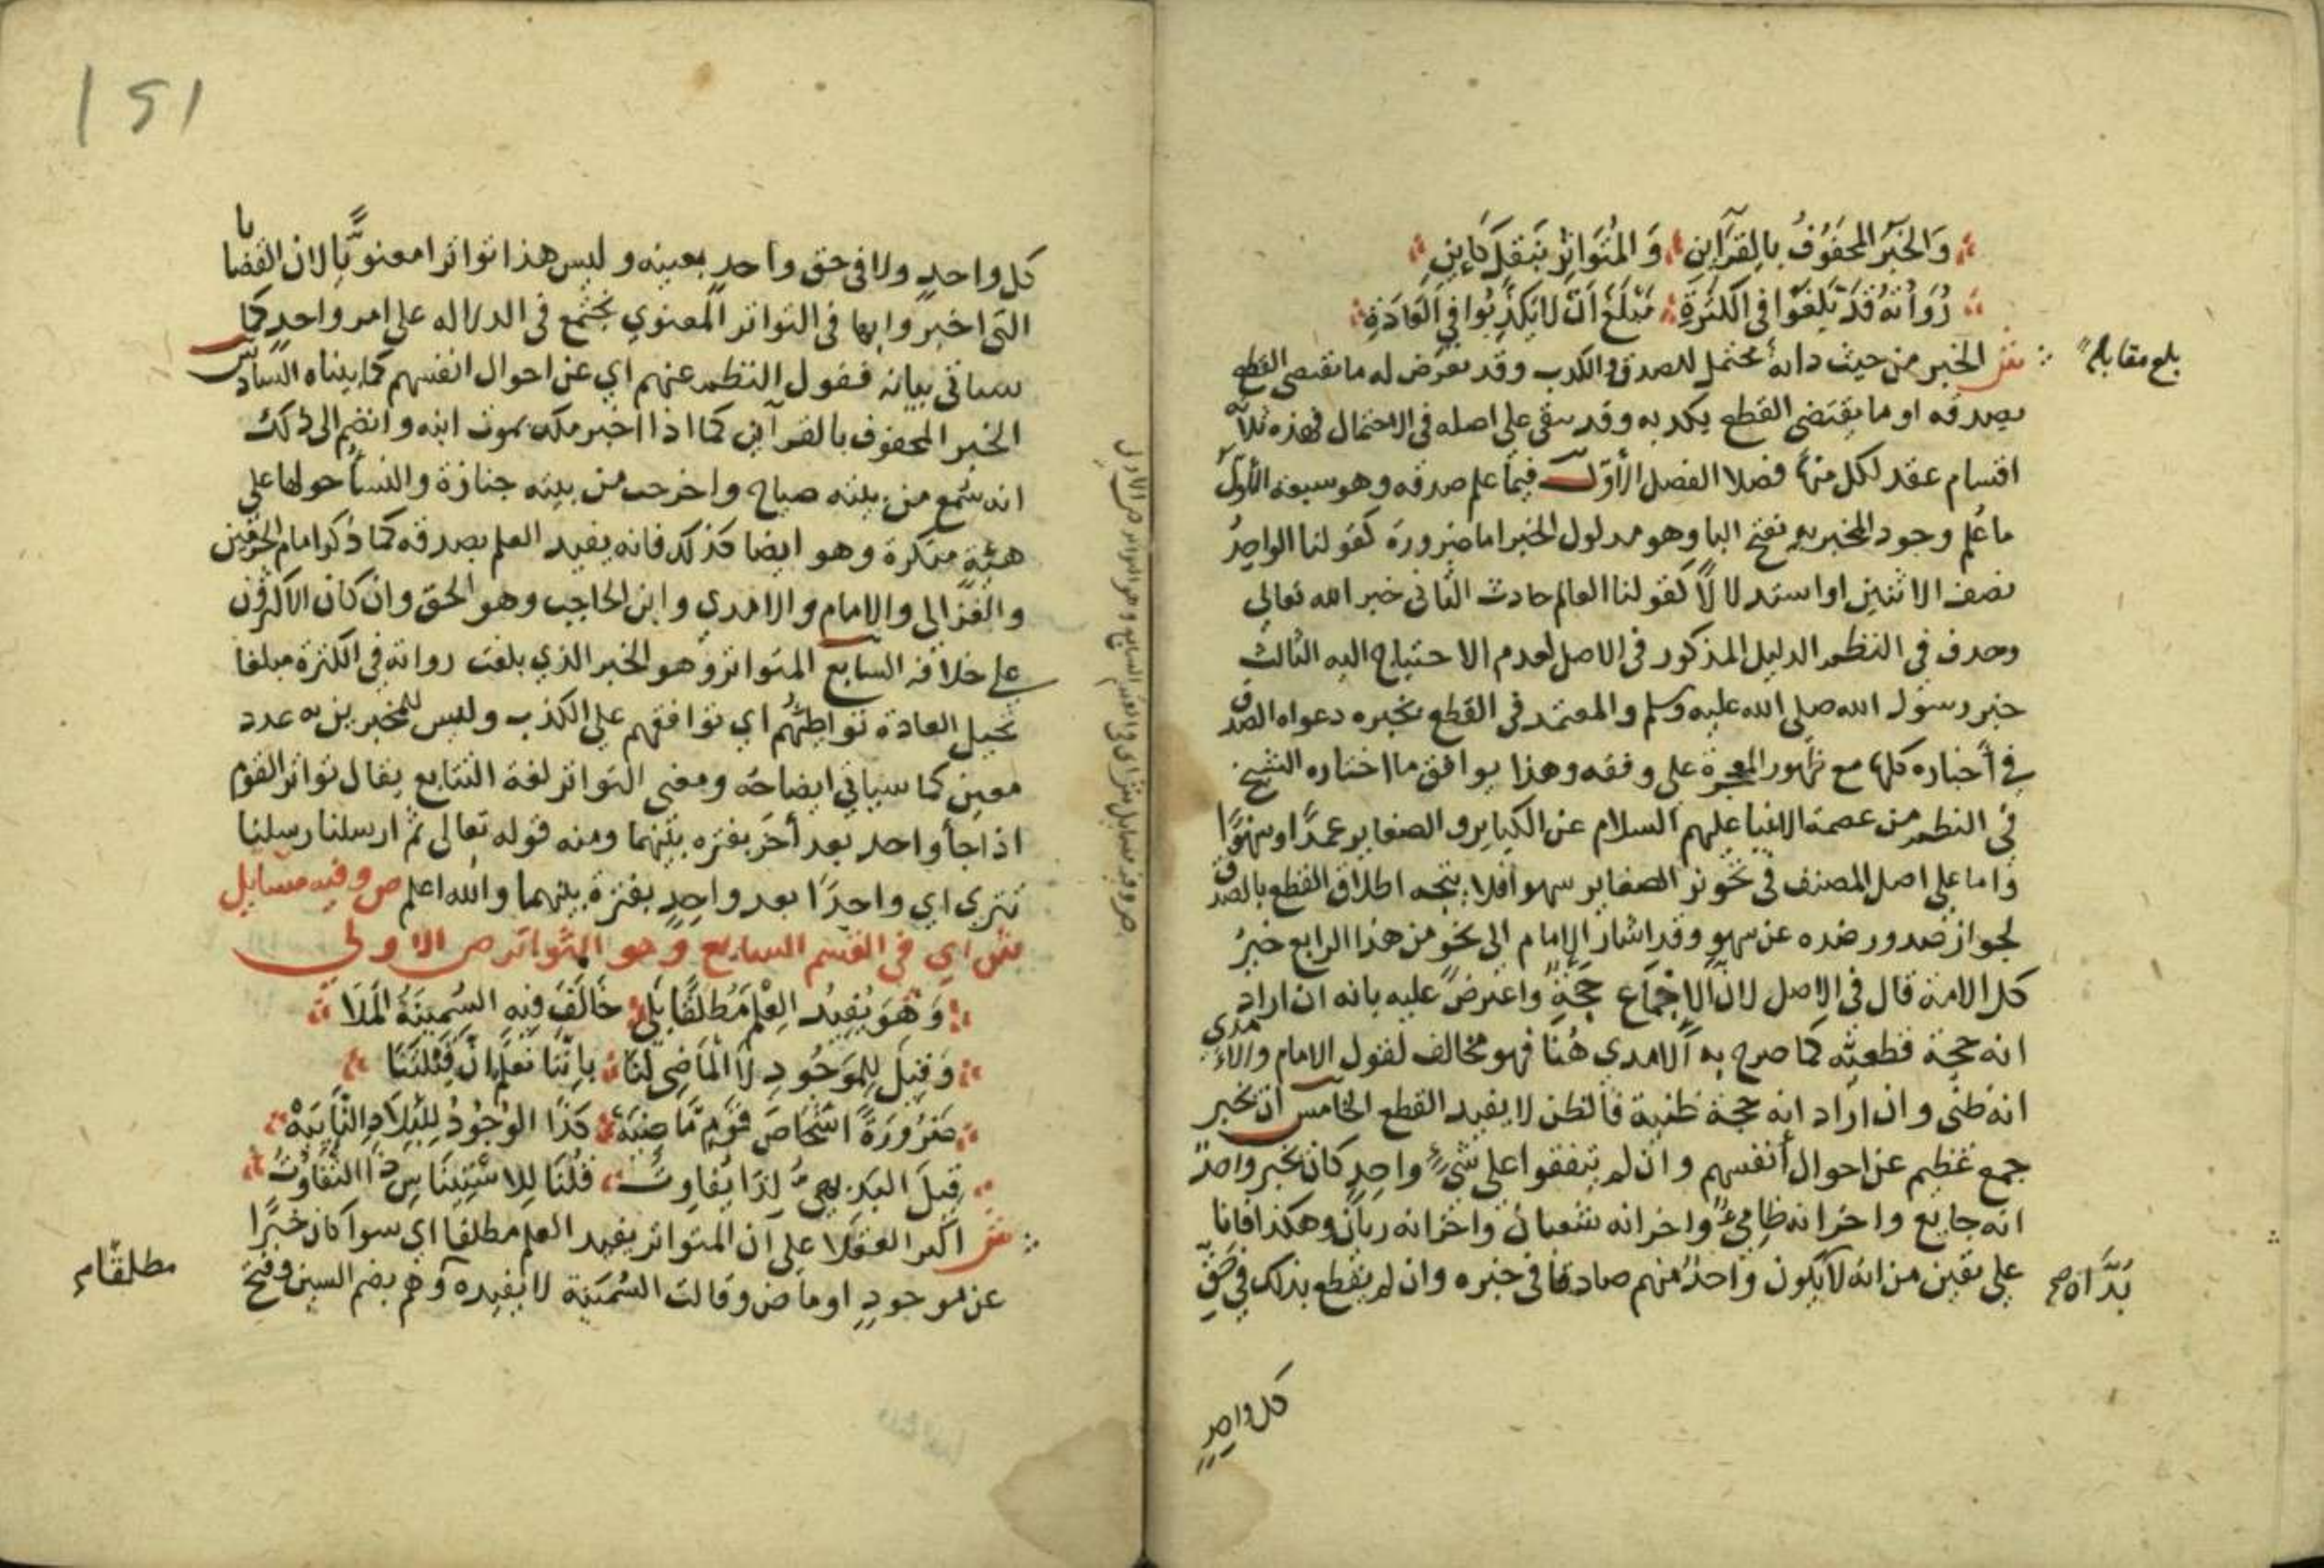 وَالخَبَرُ المَحفُوفُ بِالقَرَآئِنِ وَالمُتَوَاتِرُ بِنَقلٍ كَائِنِ
رُوَاتُهُ قَدْ بَلَغُوا فِي الكَثرَةِ مَبْلَغَ أَن لَا يَكذِبُوا فِي العَادَةِ
بلغ مقابلة
ش الخبر من حيث ذاته محتمل للصدق والكذب وقد يعرض له ما يقتضي القطع
بصدقه او ما يقتضي القطع بكذبه وقد يبقى على اصله في الاحتمال فهذه ثلاثة
اقسام عقد لكل منها فصلا الفصل الأوّل فيما علم صدقه وهو سبعة الأول
ما عُلم وجود المخبر به بفتح البا وهو مدلول الخبر اما ضرورة كقولنا الواحدُ
نصف الاثنين او استدلالًا كقولنا العالم حادث الثاني خبر الله تعالى
وحذف في النظم الدليل المذكور في الاصل لعدم الاحتياج اليه الثالث
خبر رسول الله صلى الله عليه وسلم والمعتمد في القطع بخبره دعواه الصدق
في أخباره كلها مع ظهور المعجزة على وفقه وهذا يوافق ما اختاره الشيخ
في النظم من عصمة الانبيا عليهم السلام عن الكبائر والصغاير عمدًا وسهوًا
واما على اصل المصنف في تجويز الصغاير سهوا فلا يتجه اطلاق القطع بالصدق
لجواز صدور ضده عن سهو وقد اشار الإمام الى نحو من هذا الرابع خبرُ
كل الامة قال في الاصل لان الاجماع حجة واعترض عليه بانه ان اراد
انه حجة قطعيّة كما صرح به الآمدي هُنا فهو مخالف لقول الامام والآمدي
انه ظني وان اراد انه حجة ظنية فالظن لا يفيد القطع الخامس ان يخبر
جمع عظيم عن احوال أنفسهم وان لم يتفقوا على شيءٍ واحدٍ كان يخبر واحدٌ
انه جايع واخر انه ظاميءٌ واخر انه شعبان واخر انه ريّان وهكذا فانا
على يقين من انه لا يكون واحدٌ منهم صادقا في خبره وان لم يقطع بذلك في حقِّ
كل واحدٍ
151
كل واحدٍ ولا في حق واحدٍ بعينه وليس هذا تواترا معنويًّا لان القضايا
التي اخبروا بها في التواتر المعنوي تجتمع في الدلاله على امر واحدٍ كما
سياتي بيانه فقول النظم عنهم اي عن احوال انفسهم كما بيناه السادس
الخبر المحفوف بالقرآين كما اذا اخبر ملك بموت ابنه وانضم الى ذلك
انه سُمع من بيته صياح واخرجت من بيته جنازة والنسأ حولها على
هيئة منكرة وهو ايضا كذلك فانه يفيد العلم بصدقه كما ذكر امام الحرمين
والغزالي والامام والآمدي وابن الحاجب وهو الحق وان كان الاكثرون
على خلافه السابع المتواتر وهو الخبر الذي بلغت رواته في الكثرة مبلغا
تحيل العادة تواطئهم اي توافقهم على الكذب وليس للمخبرين به عدد
معين كما سيأتي ايضاحه ومعنى التواتر لغة التتابع يقال تواتر القوم
اذا جأ واحد بعد أخر بفتره بينهما ومنه قوله تعالى ثم ارسلنا رسلنا
تترى اي واحدًا بعد واحدٍ بفترة بينهما والله اعلم ص وفيه مسايل
ش اي في القسم السابع وهو المتواتر ص الاولى
وَهُوَ يُفِيدُ العِلْمَ مُطلَقًا بَلَى خَالَفَ فِيهِ السُّمَنِيَّةُ المَلَا
وَقِيلَ لِلمَوجُودِ لَا المَاضِي لَنَا بِانّنَا نَعلَمُ انَّ قَبْلَنَا
ضَرُورَةً اشخَاصَ قَومٍ مَّاضِيَه كَذَا الوُجُودُ لِلبِلَادِ النَّايِيَهْ
قِيلَ البَدِيهِيُّ لِذَا يُفَاوِتُ قُلنَا لِلِاسْتِينَاسِ ذَا التَّفَاوُتُ
ش اكثر العقلا على أن المتواتر يفيد العلم مطلقا اي سوا كان خبرًا
عن موجودٍ او ماض وقالت السُّمَنيَّة لا يفيده وهم بضم السين وفتح